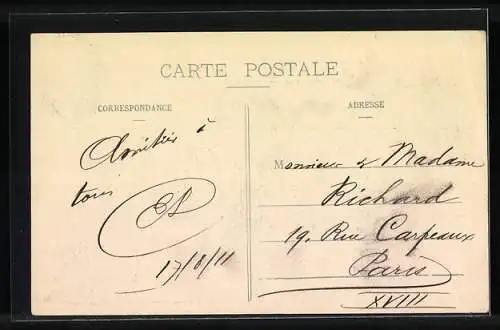 CARTE POSTALE
CORRESPONDANCE
ADRESSE
Amitiés à
tous
17/8/11
Monsieur & Madame
Richard
19, Rue Carpeaux
Paris
XVIII